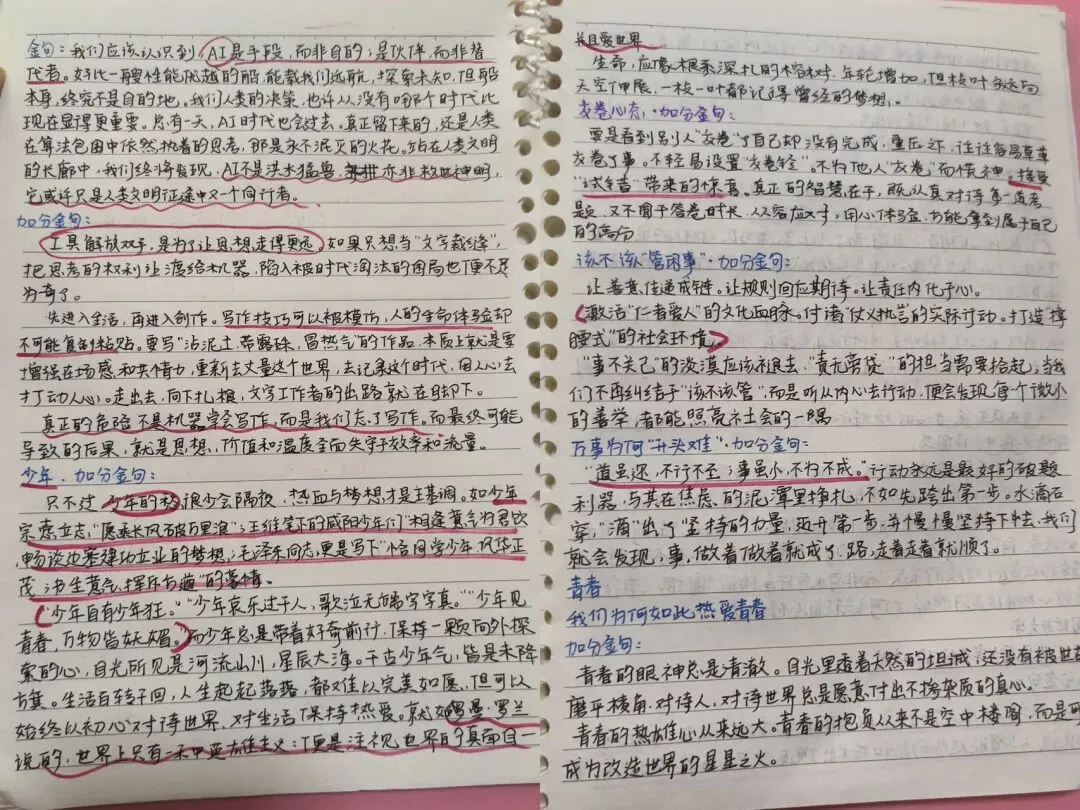 金句：我们应该认识到，AI是手段，而非目的；是伙伴，而非替
代者。好比一艘性能优越的船，能载我们远航，探索未知，但船
本身，终究不是目的地。我们人类的决策，也许从没有哪个时代比
现在显得更重要。总有一天，AI时代也会过去。真正留下来的，还是人类
在算法包围中依然执着的思考，那是永不泯灭的火花。站在人类文明
的长廊中，我们终将发现，AI不是洪水猛兽，亦非救世神明，
它或许只是人类文明征途中又一个同行者。
加分金句：
工具解放双手，是为了让思想走得更远，如果只想当“文字裁缝”，
把思考的权利让渡给机器，陷入被时代淘汰的困局也便不足
为奇了。
先进入生活，再进入创作。写作技巧可以被模仿，人的生命体验却
不可能复制粘贴。要写“沾泥土、带露珠、冒热气”的作品，本质上就是要
增强在场感和共情力，重新去丈量这个世界，去记录这个时代，用人心去
打动人心。走出去，向下扎根，文字工作者的出路就在脚下。
真正的危险不是机器学会写作，而是我们忘了写作。而最终可能
导致的后果，就是思想、价值和温度全面失守于效率和流量。
少年·加分金句：
只不过，少年的愁很少会隔夜，热血与梦想才是主基调。如少年
宗悫立志，“愿乘长风破万里浪”；王维笔下的咸阳少年们“相逢意气为君饮”
畅谈边塞建功立业的梦想；毛泽东同志，更是写下“恰同学少年，风华正
茂；书生意气，挥斥方遒”的豪情。
“少年自有少年狂。”“少年哀乐过于人，歌泣无端字字真。”“少年见
青春，万物皆妩媚。”而少年总是带着好奇前行，保持一颗向外探
索的心，目光所见是河流山川，星辰大海。千古少年气，皆是未降
方旗。生活百转千回，人生起起落落，都难以完美如愿，但可以
始终以初心对待世界，对生活保持热爱。就如罗曼·罗兰
说的，世界上只有一种英雄主义：便是注视世界的真面目—
并且爱世界
生命，应像根系深扎的榕树，年轮增加，但枝叶永远向
天空伸展，一枝一叶都记得曾经的梦想。
交卷心态·加分金句：
要是看到别人“交卷”了自己却没有完成，重压之下，往往容易草草
交卷了事。不轻易设置“交卷铃”，不为他人“交卷”而慌神。接受
“试错”带来的惊喜。真正的智慧在于，既认真对待每一道考
题，又不囿于答卷时长，从容应对，用心体验，方能拿到属于自己
的高分
该不该“管闲事”·加分金句：
让善意传递成链。让规则回应期待。让责任内化于心。
激活“仁者爱人”的文化血脉。付诸“仗义执言”的实际行动。打造“撑
腰式”的社会环境。
“事不关己”的淡漠应该褪去，“责无旁贷”的担当需要拾起。当我
们不再纠结于“该不该管”，而是听从内心去行动，便会发现，每个微小
的善举，都能照亮社会的一隅
万事为何“开头难”·加分金句：
“道虽迩，不行不至；事虽小，不为不成。”行动永远是最好的破题
利器，与其在焦虑的泥潭里挣扎，不如先跨出第一步。水滴石
穿，“滴”出了坚持的力量，迈开第一步，并慢慢坚持下去，我们
就会发现，事，做着做着就成了，路，走着走着就顺了。
青春
我们为何如此热爱青春
加分金句：
青春的眼神总是清澈。目光里透着天然的坦诚，还没有被世故
磨平棱角，对待人，对待世界总是愿意付出不掺杂质的真心。
青春的热雄心从来远大。青春的抱负从来不是空中楼阁，而是可
成为改造世界的星星之火。